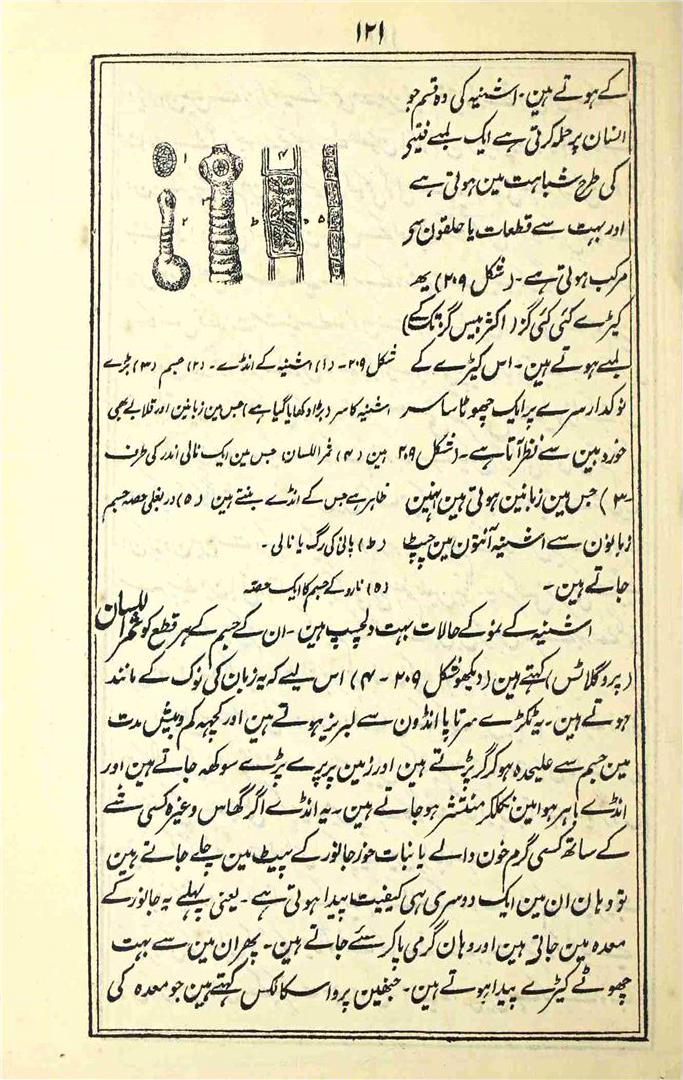 ۱۲۱
کے ہوتے ہین۔ اشنیہ کی وہ قسم جو
انسان پر حملہ کرتی ہے ایک لمبے فیتے
کی طرح شباہت مین ہوتی ہے
اور بہت سے قطعات یا حلقون سے
مرکب ہوتی ہے۔ (شکل ۲۰۹) یہ
کیڑے کئی کئی گز (اکثر بیس گز تک کے)
لمبے ہوتے ہین۔ اس کیڑے کے
نوکدار سرے پر ایک چھوٹا سا سر
خوردبین سے نظر آتا ہے۔ (شکل ۲۰۹
-۳) جس مین زبانین ہوتی ہین انہین
زبانون سے اشنیہ آنتون مین چپٹ
جاتے ہین۔
۱
۲
۳
۴
ط
۵
۵
شکل ۲۰۹۔ (۱) اشنیہ کے انڈے۔ (۲) جسم (۳) بڑے
اشنیہ کا سر (بڑا دکھایا گیا ہے) جس مین زبانین اور قلابے بھی
ہین (۴) ثمر اللسان جس مین ایک نالی اندر کی طرف
ظاہر ہے جس کے انڈے بنتے ہین (۵) در بغلی حصہ جسم
(ط) پانی کی رگ یا نالی۔
(۵) نارو کے جسم کا ایک حصہ
اشنیہ کے نمو کے حالات بہت دلچسپ ہین۔ ان کے جسم کے ہر قطع کو ثمر اللسان
(پروگلاٹس) کہتے ہین (دیکھو شکل ۲۰۹ - ۴) اس لیے کہ یہ زبان کی نوک کے مانند
ہوتے ہین۔ یہ ٹکڑے سرتاپا انڈون سے لبریز ہوتے ہین اور کچھہ کم و بیش مدت
مین جسم سے علیحدہ ہو کر گر پڑتے ہین اور زمین پر پڑے پڑے سوکھہ جاتے ہین اور
انڈے باہر ہوا مین نکلکر منتشر ہو جاتے ہین۔ یہ انڈے اگر گھاس وغیرہ کسی شے
کے ساتھ کسی گرم خون والے یا نبات خور جانور کے پیٹ مین چلے جاتے ہین
تو وہان ان مین ایک دوسری ہی کیفیت پیدا ہوتی ہے۔ یعنی پہلے یہ جانور کے
معدہ مین جاتی ہین اور وہان گرمی پا کر سئے جاتے ہین۔ پھر ان مین سے بہت
چھوٹے کیڑے پیدا ہوتے ہین۔ جنھین پرواسکالکس کہتے ہین جو معدہ کی